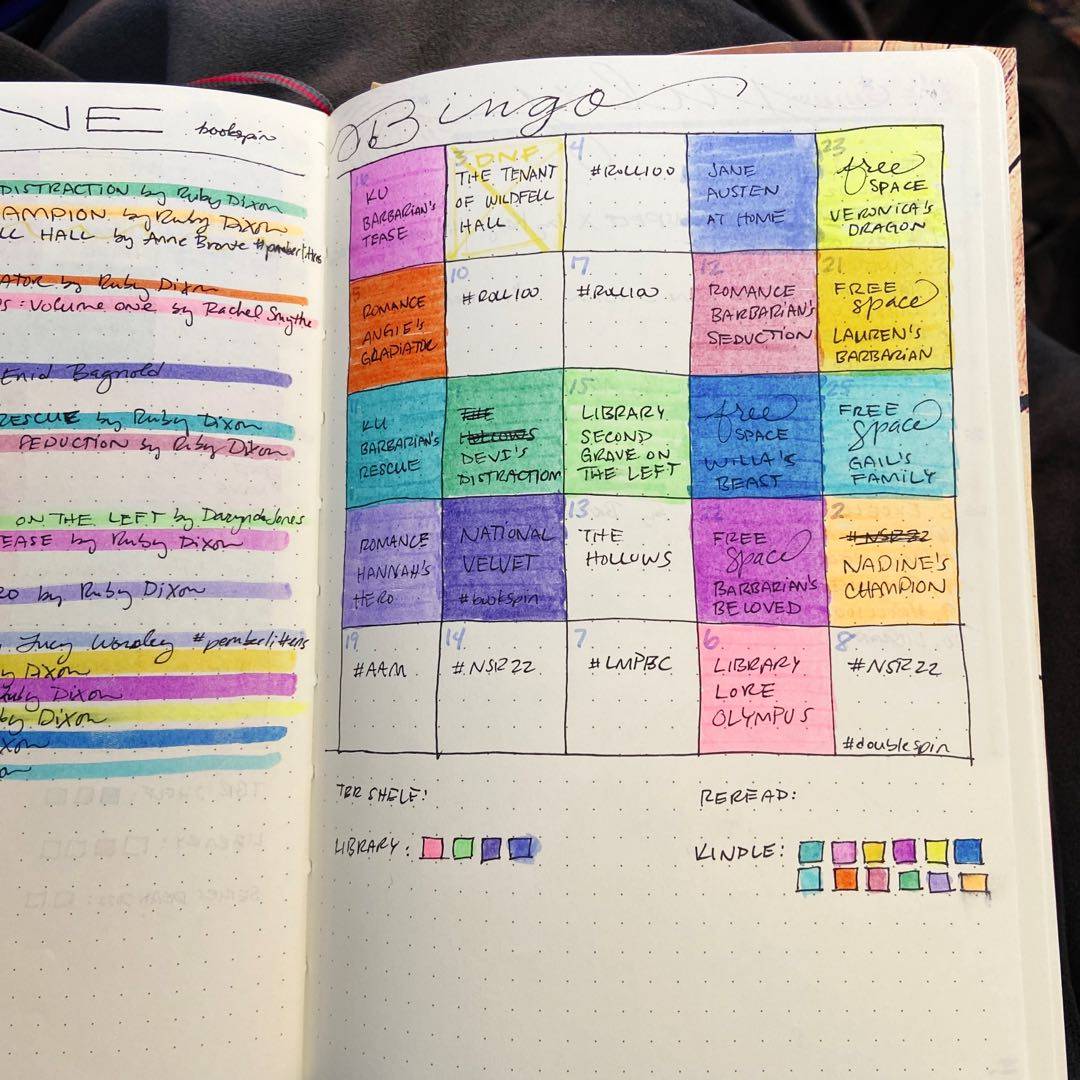 NE bookspin
DISTRACTION by Ruby Dixon
AMPION by Ruby Dixon
LL HALL by Anne Bronte #pemberlittens
ATOR by Ruby Dixon
S: VOLUME ONE by Rachel Smythe
Enid Bagnold
RESCUE by Ruby Dixon
SEDUCTION by Ruby Dixon
ON THE LEFT by Darynda Jones
EASE by Ruby Dixon
RO by Ruby Dixon
Lucy Worsley #pemberlittens
by Dixon
Ruby Dixon
by Dixon
Bingo
16
KU
BARBARIAN'S
TEASE
3 DNF
THE TENANT
OF WILDFELL
HALL
4
#ROLL100
JANE
AUSTEN
AT HOME
23
free
SPACE
VERONICA'S
DRAGON
ROMANCE
ANGIE'S
GLADIATOR
10
#ROLL100
17
#ROLL100
12
ROMANCE
BARBARIAN'S
SEDUCTION
21
FREE
space
LAUREN'S
BARBARIAN
KU
BARBARIAN'S
RESCUE
THE
HOLLOWS
DEVI'S
DISTRACTION
15
LIBRARY
SECOND
GRAVE ON
THE LEFT
free
SPACE
WILLA'S
BEAST
25
FREE
space
GAIL'S
FAMILY
ROMANCE
HANNAH'S
HERO
NATIONAL
VELVET
#bookspin
13
THE
HOLLOWS
22
FREE
space
BARBARIAN'S
BELOVED
2
#NSR22
NADINE'S
CHAMPION
19
#AAM
14
#NSR22
7
#LMPBC
6
LIBRARY
LORE
OLYMPUS
8
#NSR22
#doublespin
TBR SHELF:
REREAD:
LIBRARY:
KINDLE: